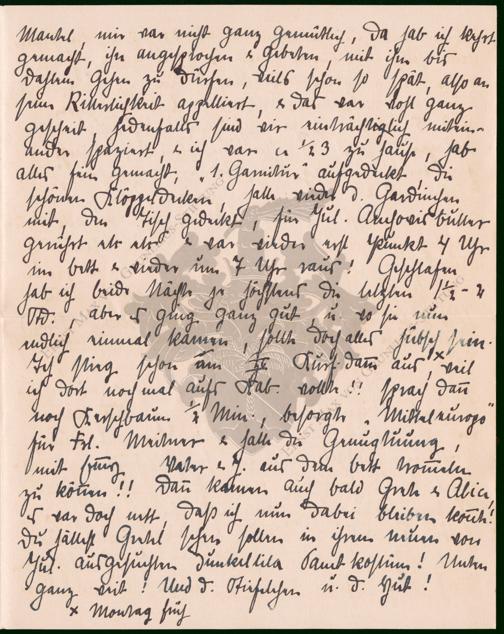 Mantel, mir war nicht ganz gemütlich, da hab ich kehrt
gemacht, ihn angesprochen & gebeten, mit ihm bis
Dahlem gehen zu dürfen, weils schon so spät, also an
seine Ritterlichkeit appelliert, & das war wohl ganz
gescheit, jedenfalls sind wir einträchtiglich mitein-
ander spaziert, & ich war ca ½3 zu Hause, hab
alles fein gemacht, "1. Garnitur" aufgedeckt die
schönen Klöppeldecken, halbe d. Gardinchen
mit, den Tisch gedeckt, für Jul. Anchovisbutter
gerührt etc etc & war wieder erst Punkt 4 Uhr
im bett & wieder um 7 Uhr raus! Geschlafen
hab ich beide Nächte so höchstens die letzten 1½-2
Std. aber es ging ganz gut u. wo sie nun
endlich einmal kamen, sollte doch alles hübsch sein.
Ich stieg schon am Kurf.damm aus, x weil
ich dort noch mal aufs Lab. wollte!! sprach dann
noch Kerschbaum ½ Min., besorgte "Mitteleuropa"
für Frl. Meitner & hatte die Genugtuung,
mit Vater & J. aus dem bett trommeln
zu können!! Dann kamen auch bald Grete & Alice,
es war doch nett, daß ich nun dabei bleiben konnte!
Du hättest Gretel sehen sollen in ihrem neuen von
Jul. ausgesuchten dunkellila Samtkostüm! Unten
ganz weit! Und d. Stiefelchen u. d. Hut!
x Montag früh